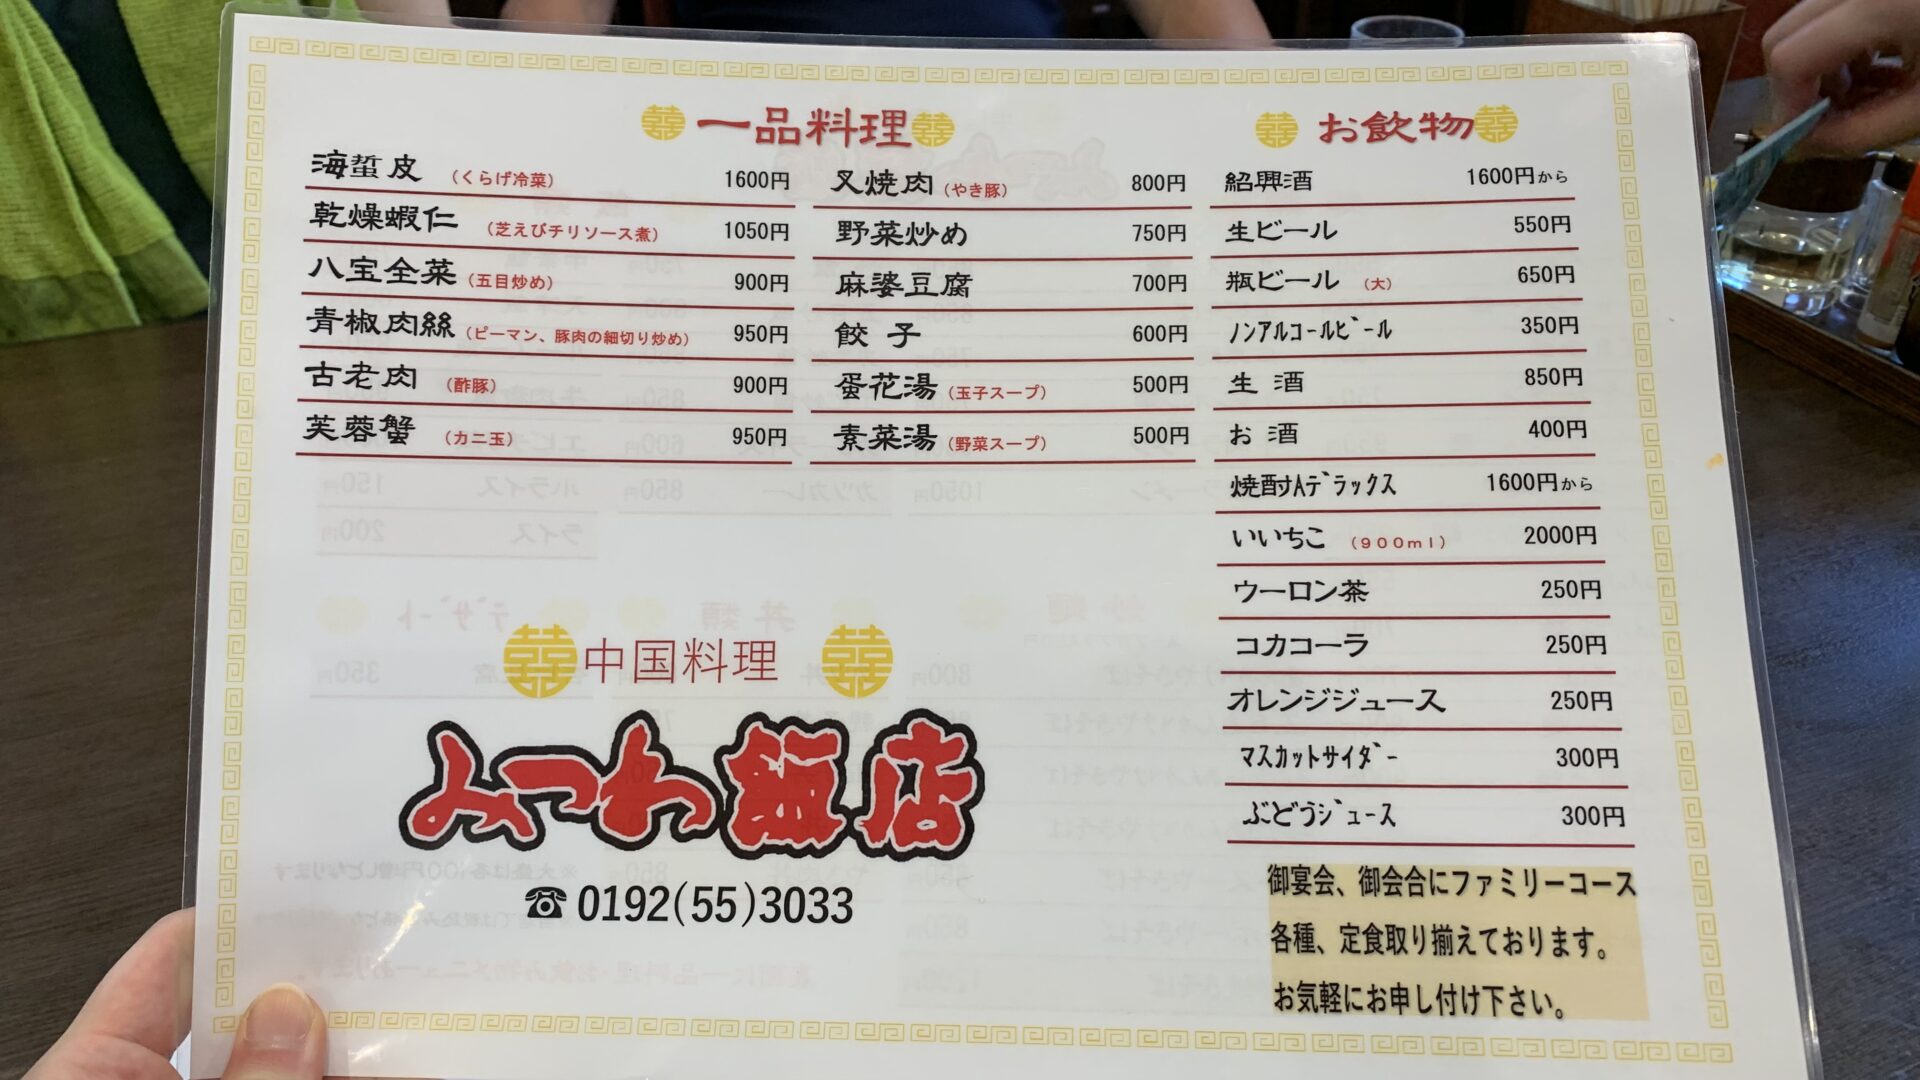 一品料理
海蜇皮 （くらげ冷菜） 1600円
乾燥蝦仁 （芝えびチリソース煮） 1050円
八宝全菜 （五目炒め） 900円
青椒肉絲 （ピーマン、豚肉の細切り炒め） 950円
古老肉 （酢豚） 900円
芙蓉蟹 （カニ玉） 950円
叉焼肉 （やき豚） 800円
野菜炒め 750円
麻婆豆腐 700円
餃子 600円
蛋花湯 （玉子スープ） 500円
素菜湯 （野菜スープ） 500円
お飲物
紹興酒 1600円から
生ビール 550円
瓶ビール （大） 650円
ﾉﾝｱﾙｺｰﾙﾋﾞｰﾙ 350円
生酒 850円
お酒 400円
焼酎Aﾃﾞﾗｯｸｽ 1600円から
いいちこ （９００ｍｌ） 2000円
ウーロン茶 250円
コカコーラ 250円
オレンジジュース 250円
ﾏｽｶｯﾄｻｲﾀﾞｰ 300円
ぶどうｼﾞｭｰｽ 300円
中国料理
みつわ飯店
☎0192(55)3033
御宴会、御会合にファミリーコース
各種、定食取り揃えております。
お気軽にお申し付け下さい。